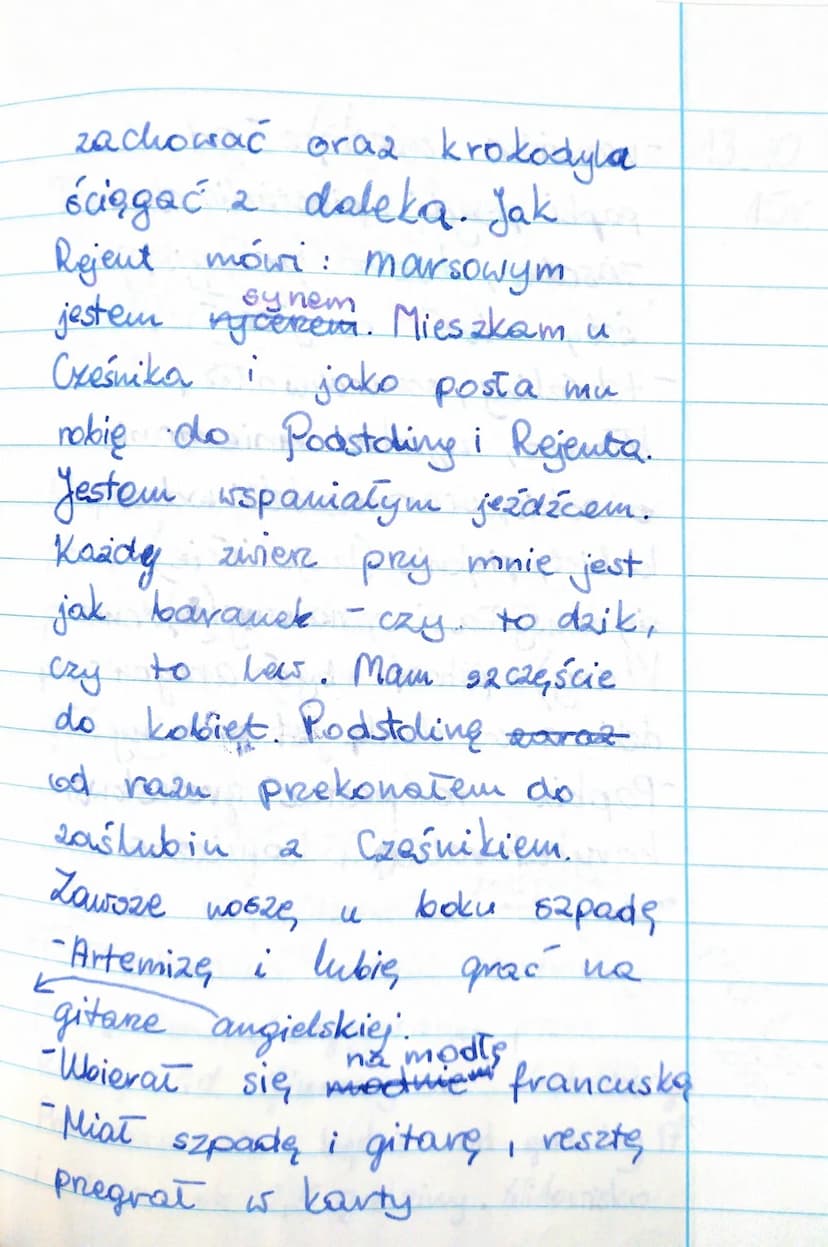 zachować oraz krokodyla
ściągać z daleka. Jak
Rejent mówi: marsowym
jestem rycerzem synem. Mieszkam u
Cześnika i jako posła mu
robię do Podstoliny i Rejenta.
Jestem wspaniałym jeźdźcem.
Każdy zwierz przy mnie jest
jak baranek - czy to dzik,
czy to lew. Mam szczęście
do kobiet. Podstolinę zaraz
od razu przekonałem do
zaślubin z Cześnikiem.
Zawsze noszę u boku szpadę
-Artemizę i lubię grać na
gitarze angielskiej.
-Ubierał się modnie na modłę francuską
-Miał szpadę i gitarę, resztę
przegrał w karty